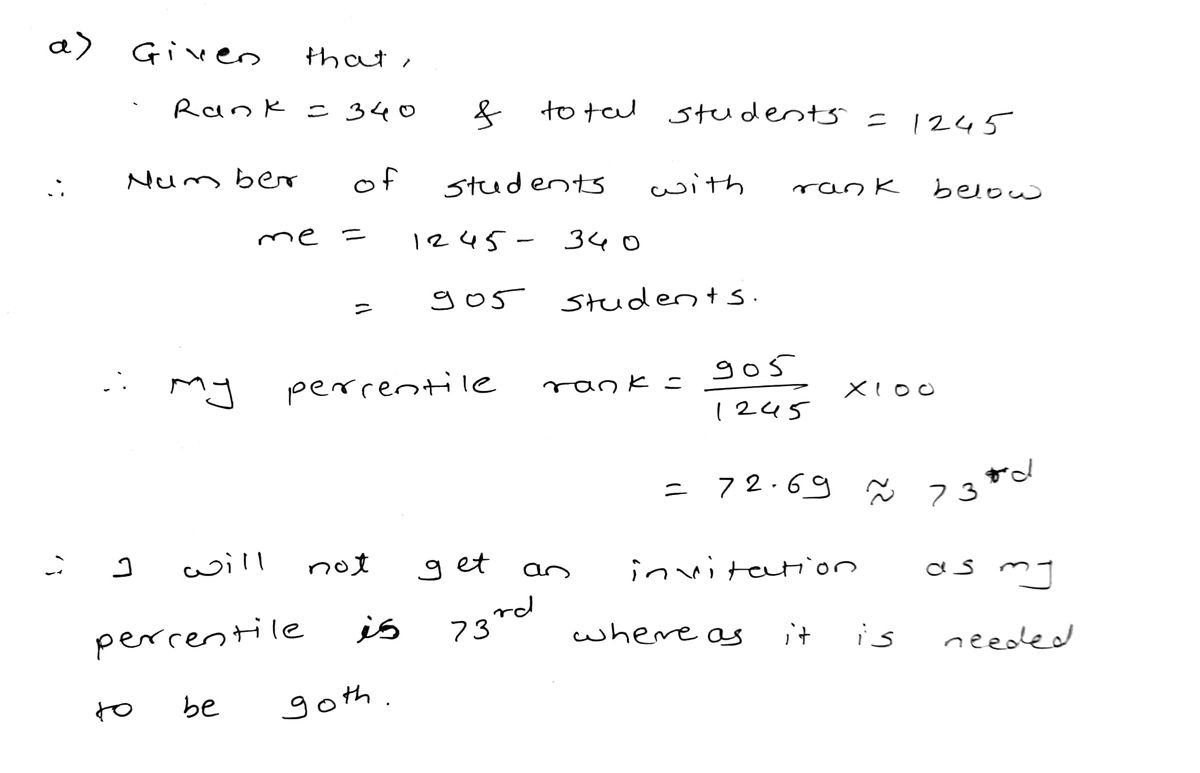 a) Given that,
Rank = 340 & total students = 1245
∴ Number of students with rank below
me = 1245 - 340
= 905 students.
∴ My percentile rank = 905/1245 × 100
= 72.69 ≈ 73rd
∴ I will not get an invitation as my
percentile is 73rd whereas it is needed
to be 90th.